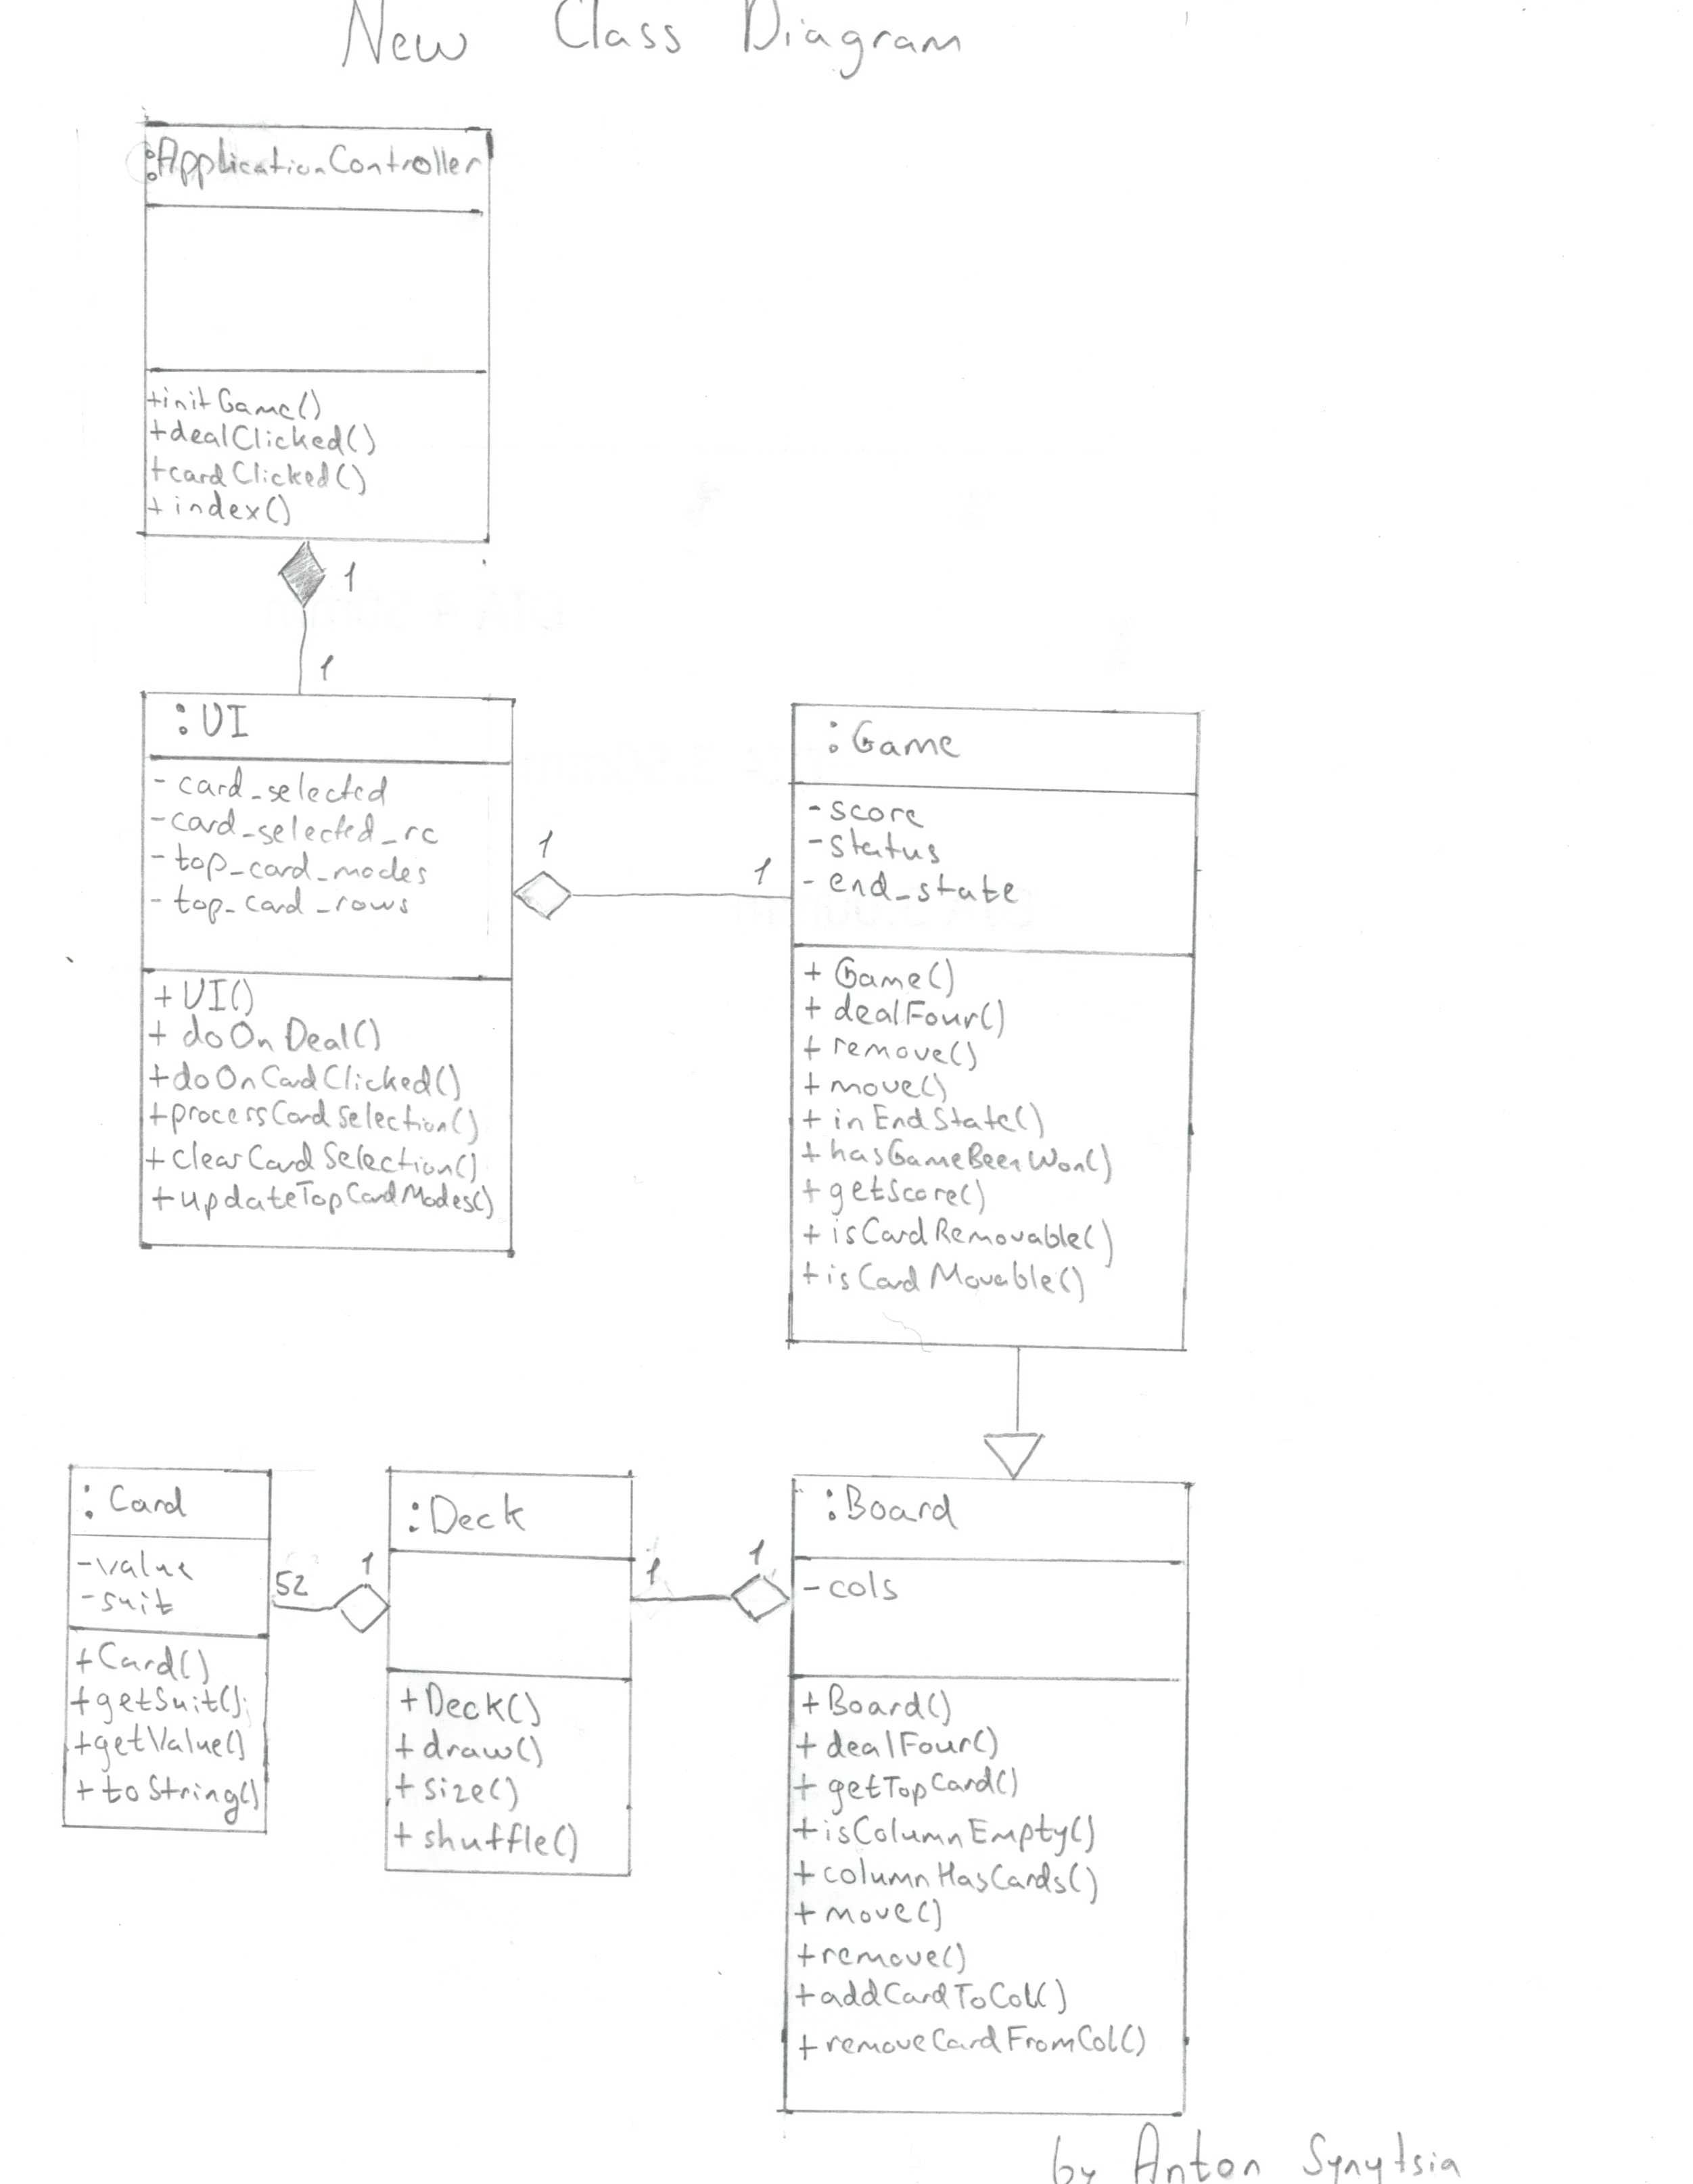 New Class Diagram
:ApplicationController
+initGame()
+dealClicked()
+cardClicked()
+index()
1
1
:UI
- card_selected
-card_selected_rc
- top_card_modes
- top_card_rows
+UI()
+ doOnDeal()
+doOnCardClicked()
+processCardSelection()
+clearCardSelection()
+updateTopCardModes()
1
1
:Game
-score
-status
- end_state
+ Game()
+ dealFour()
+ remove()
+ move()
+ inEndState()
+ hasGameBeenWon()
+ getScore()
+ isCardRemovable()
+ isCardMovable()
:Card
-value
-suit
+Card()
+getSuit()
+getValue()
+ toString()
52
1
:Deck
+Deck()
+draw()
+size()
+shuffle()
1
1
:Board
-cols
+Board()
+ dealFour()
+ getTopCard()
+isColumnEmpty()
+columnHasCards()
+move()
+remove()
+addCardToCol()
+removeCardFromCol()
by Anton Synytsia